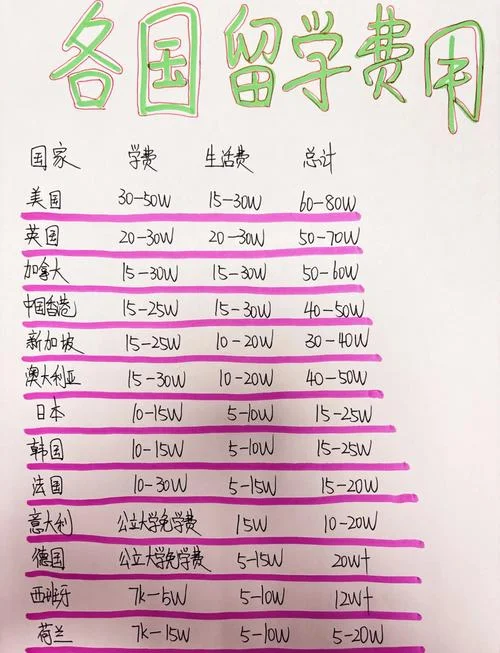 各国留学费用
国家 学费 生活费 总计
美国 30-50W 15-30W 60-80W
英国 20-30W 20-30W 50-70W
加拿大 15-30W 15-30W 50-60W
中国香港 15-25W 15-30W 40-50W
新加坡 15-25W 10-20W 30-40W
澳大利亚 15-30W 10-20W 40-50W
日本 10-15W 5-10W 15-25W
韩国 10-15W 5-10W 15-25W
法国 10-30W 5-15W 15-20W
意大利 公立大学免学费 15W 10-20W
德国 公立大学免学费 5-15W 20W+
西班牙 7k-5W 5-10W 12W+
荷兰 7k-15W 5-10W 5-20W